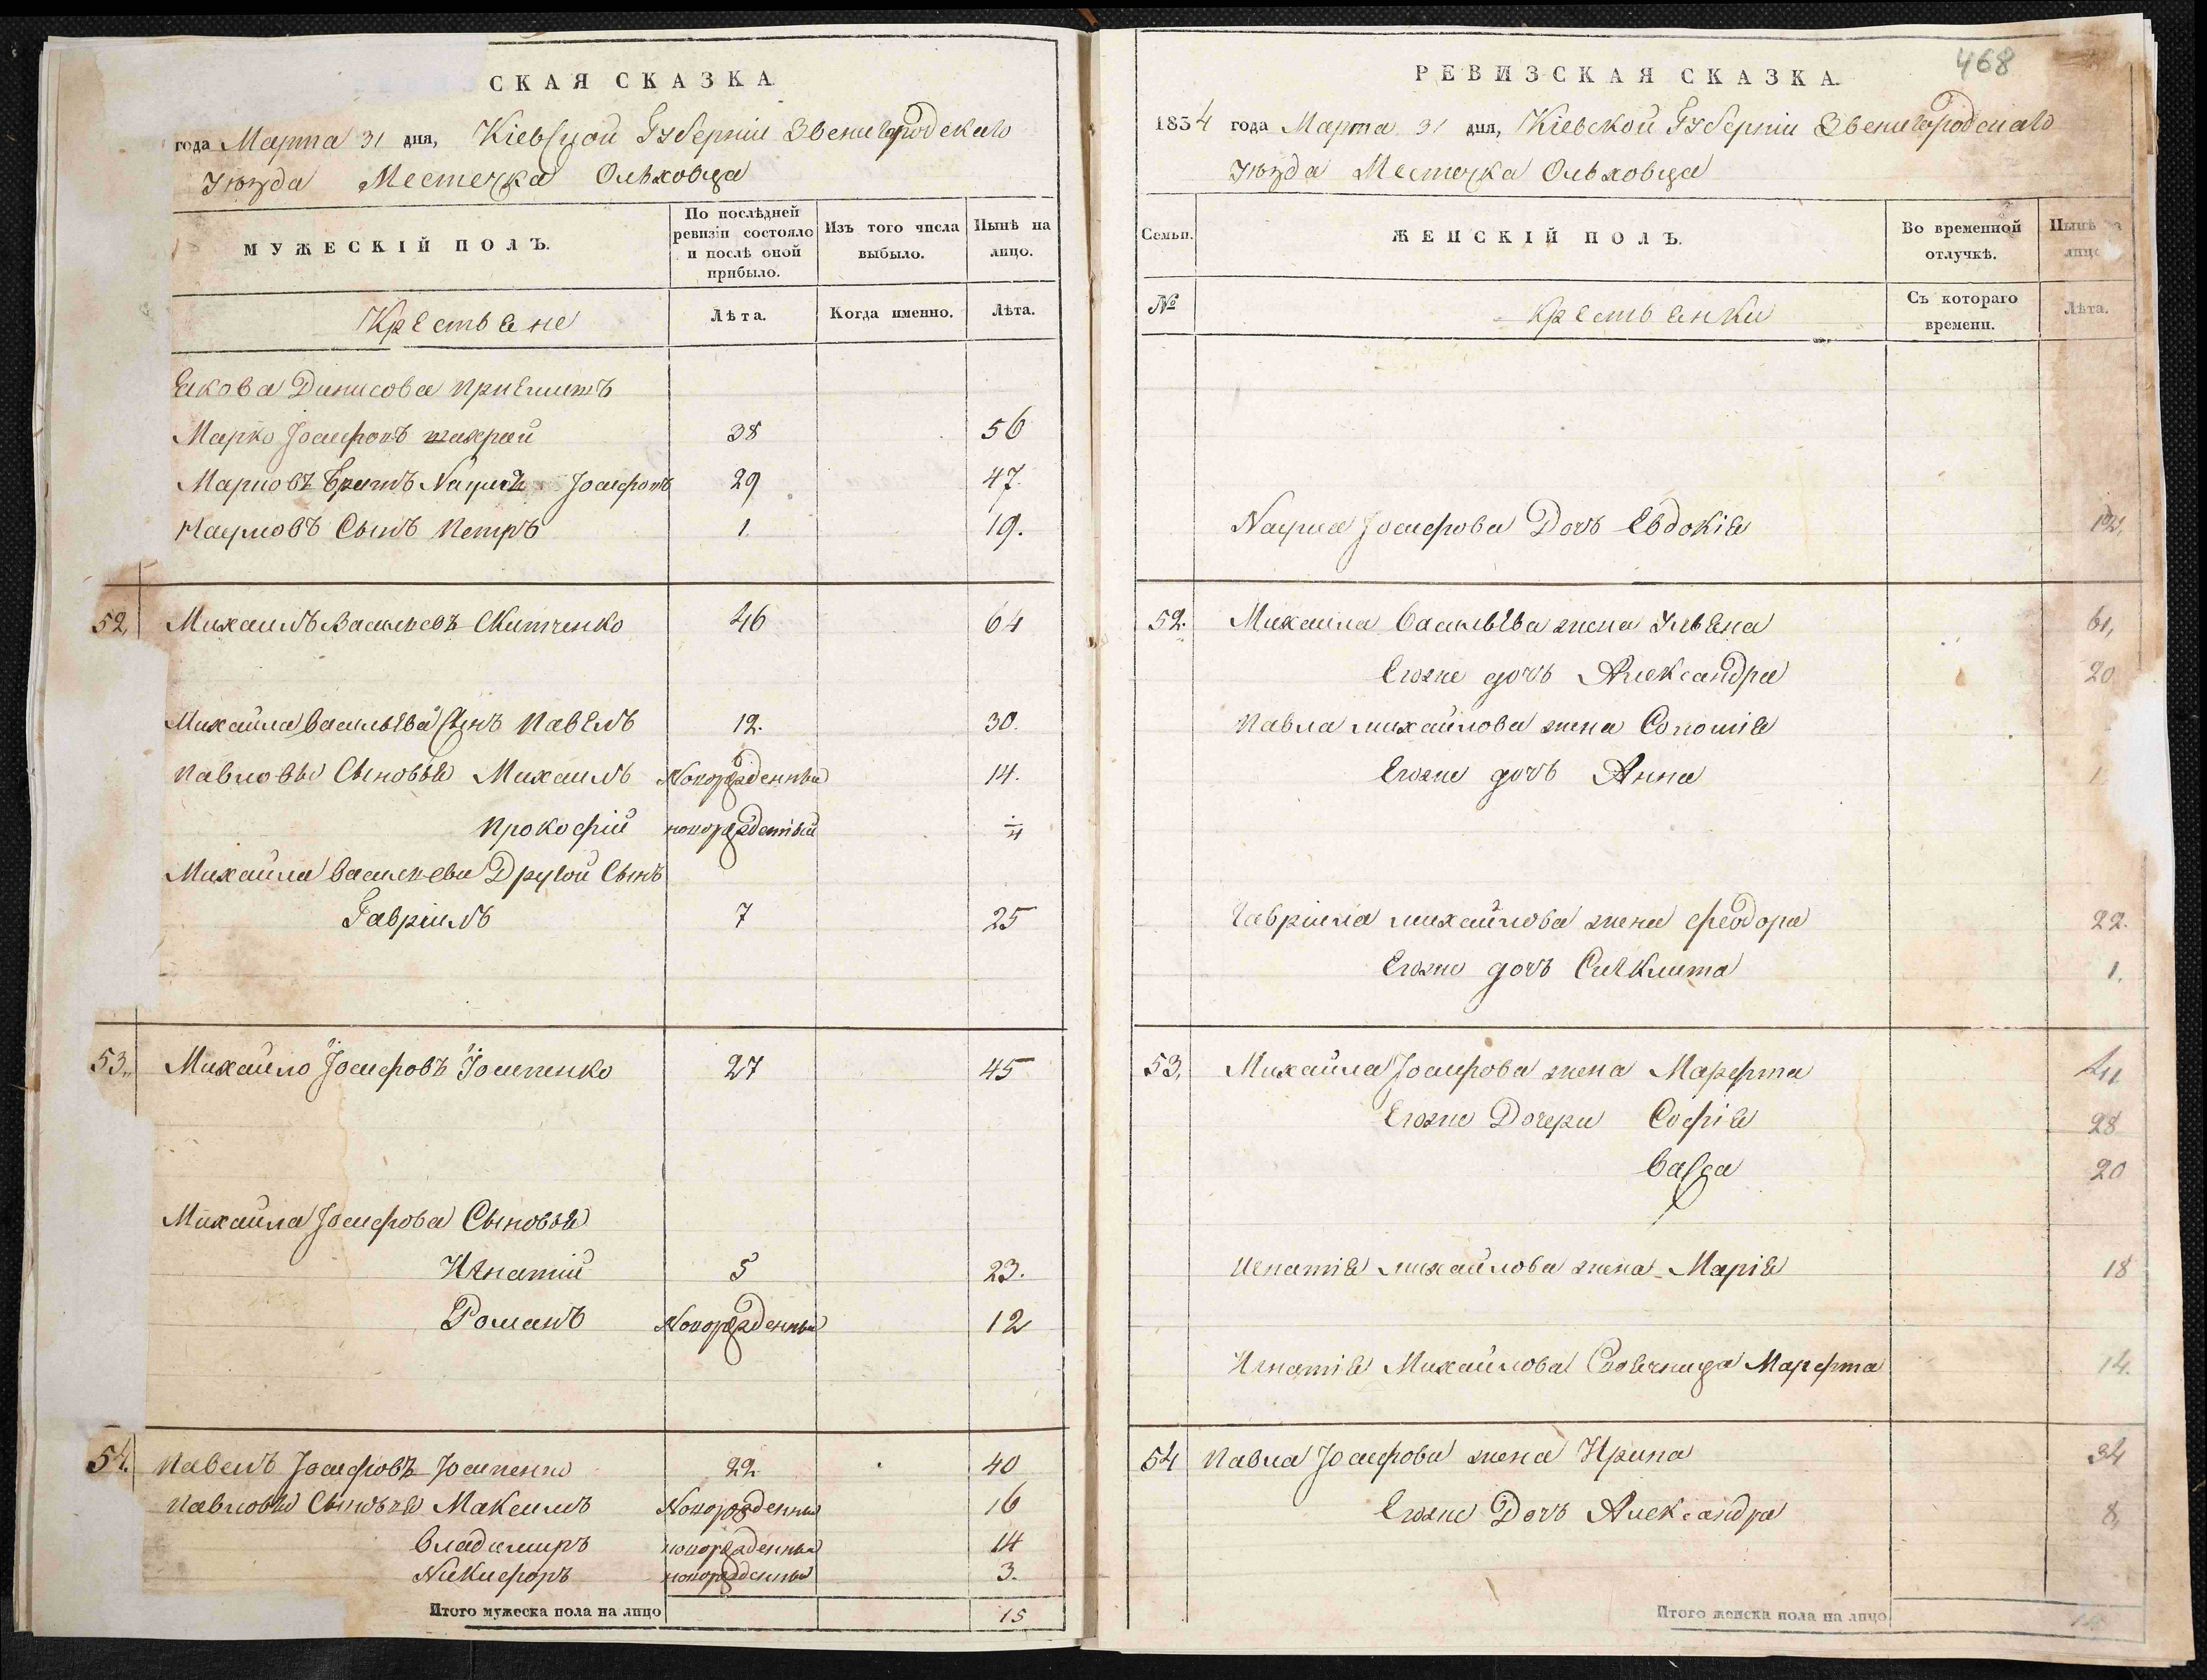 СКАЯ СКАЗКА
года Марта 31 дня, Кіевской Губерніи Звенигородскаго
Уѣзда Местечка Ольховца
МУЖЕСКІЙ ПОЛЪ.
По послѣдней ревизіи состояло и послѣ оной прибыло.
Изъ того числа выбыло.
Нынѣ на лицо.
Крестьяне
Лѣта.
Когда именно.
Лѣта.
Якова Данисова
Марко Іосифовъ 38 56
братъ Іосифовъ 29 47.
Сынъ Петръ 1. 19.
52, Михаилъ Васильевъ Скитченко 46 64
Михайла Васильева Сынъ Павелъ 12. 30.
Павловы Сыновья Михаилъ Новорожденный 14.
Прокофій новорожденный
Михайла Васильева Другой Сынъ
Гавріилъ 7 25
53. Михайло Іосифовъ Іосипенко 27 45
Михайла Іосифова Сыновья
Игнатій 5 23.
Романъ Новорожденный 12
54. Павелъ Іосифовъ Іосипенко 22 40
Павловы Сыновья Максимъ Новорожденный 16
Владимиръ новорожденный 14
Никифоръ новорожденный 3.
Итого мужеска пола на лицо 15
468
РЕВИЗСКАЯ СКАЗКА.
1834 года Марта 31 дня, Кіевской Губерніи Звенигородскаго
Уѣзда Местечка Ольховца
Семьи.
ЖЕНСКІЙ ПОЛЪ.
Во временной отлучкѣ.
Нынѣ на лицо
№
Крестьянки
Съ котораго времени.
Лѣта.
Іосифова Дочь Евдокія
52. Михайла Васильева жена Ульяна 61,
Егоже дочь Александра 20
Павла михайлова жена Соломія
Егоже дочь Анна
Гавріила михайлова жена феодора 22.
Егоже дочь 1.
53, Михайла Іосифова жена Марфта
Егоже Дочери Софія 28
Васса 20
Игнатія михайлова жена Марія 18
Игнатія Михайлова Своячница Марфта 14.
54 Павла Іосифова жена Ирина 34
Егоже Дочь Александра 8,
Итого женска пола на лицо